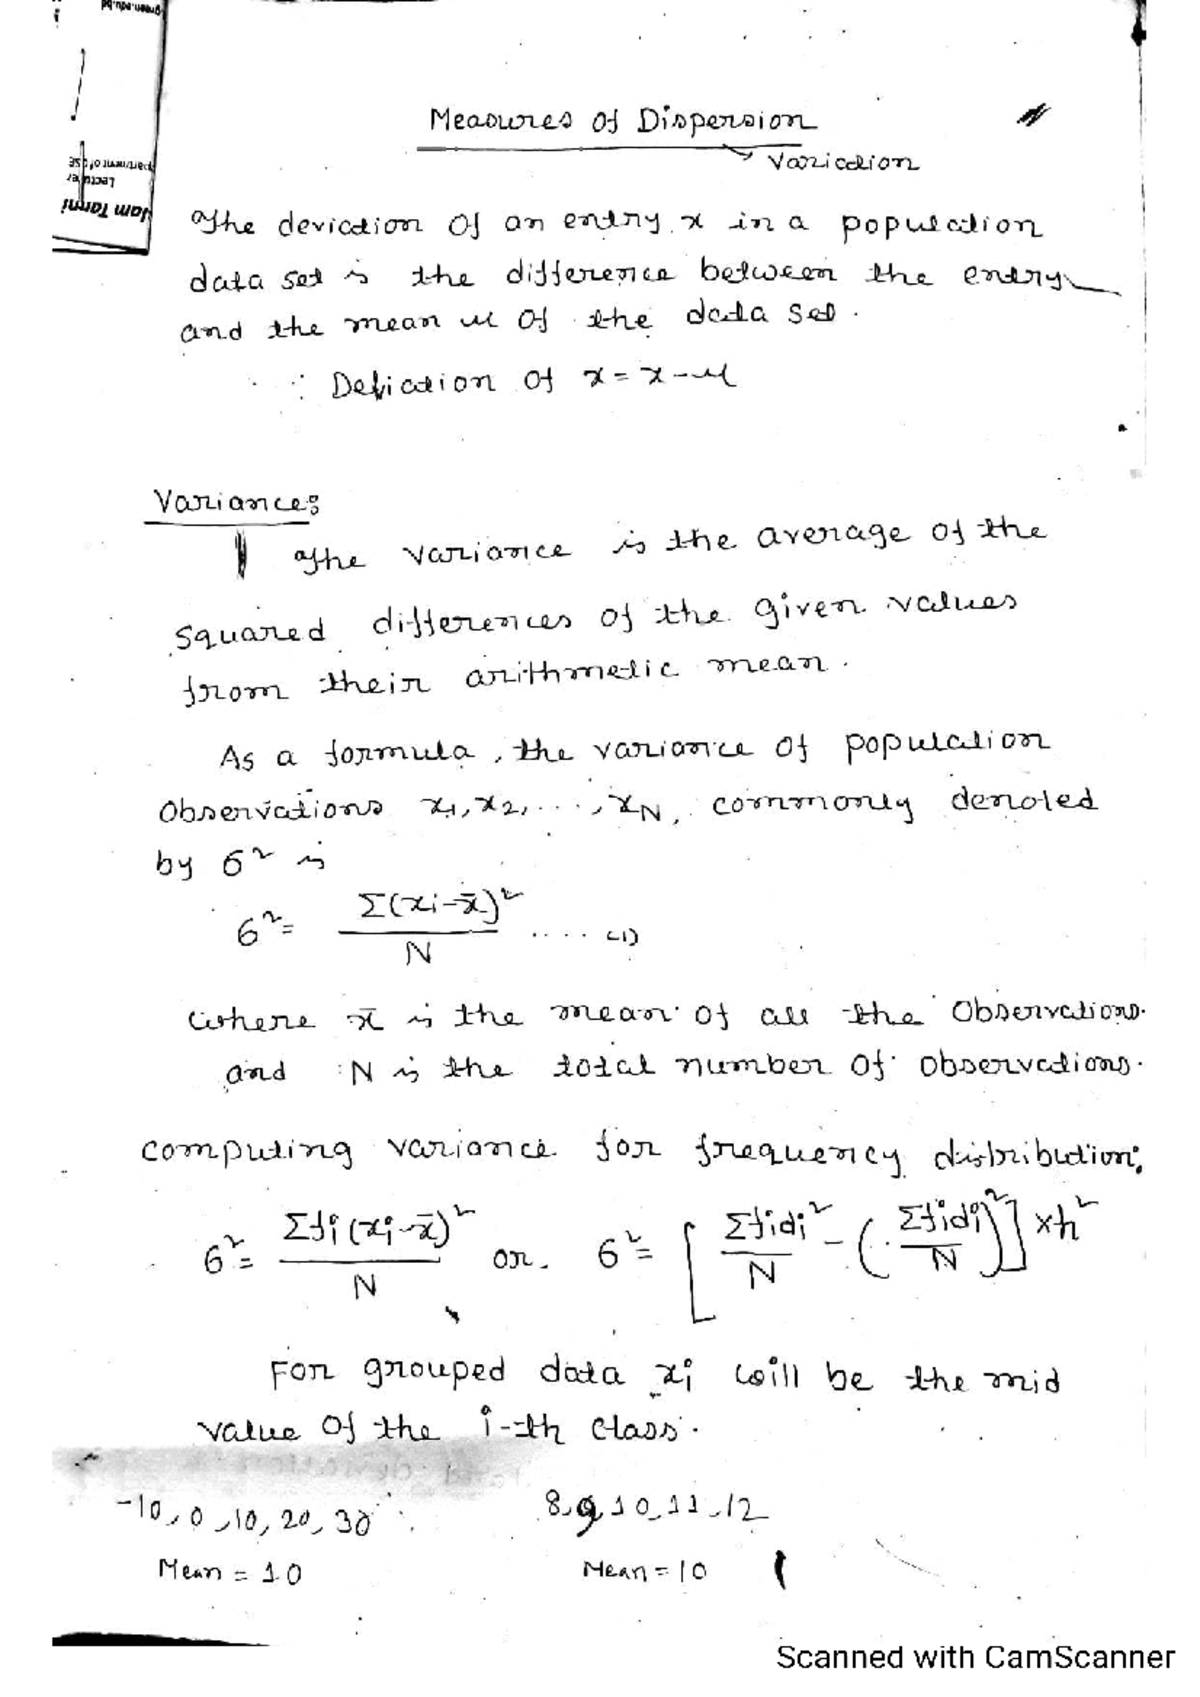 green.edu.bd
Department of CSE
Lecturer
Jam Tanni
Measures of Dispersion
Variation
The deviation of an entry x in a population
data set is the difference between the entry
and the mean μ of the data set.
∴ Defiation of x = x - μ
Variance:
The variance is the average of the
squared differences of the given values
from their arithmetic mean.
As a formula, the variance of population
observations x₁, x₂, ..., x_N, commonly denoted
by σ² is
σ² = Σ(xi - x̄)² / N ..... (1)
where x̄ is the mean of all the observations.
and N is the total number of observations.
computing variance for frequency distribution:
σ² = Σfi(xi - x̄)² / N or. σ² = [Σfidi² / N - (Σfidi / N)²] × h²
For grouped data xi will be the mid
value of the i-th class.
-10, 0, 10, 20, 30 8, 9, 10, 11, 12
Mean = 10 Mean = 10
Scanned with CamScanner